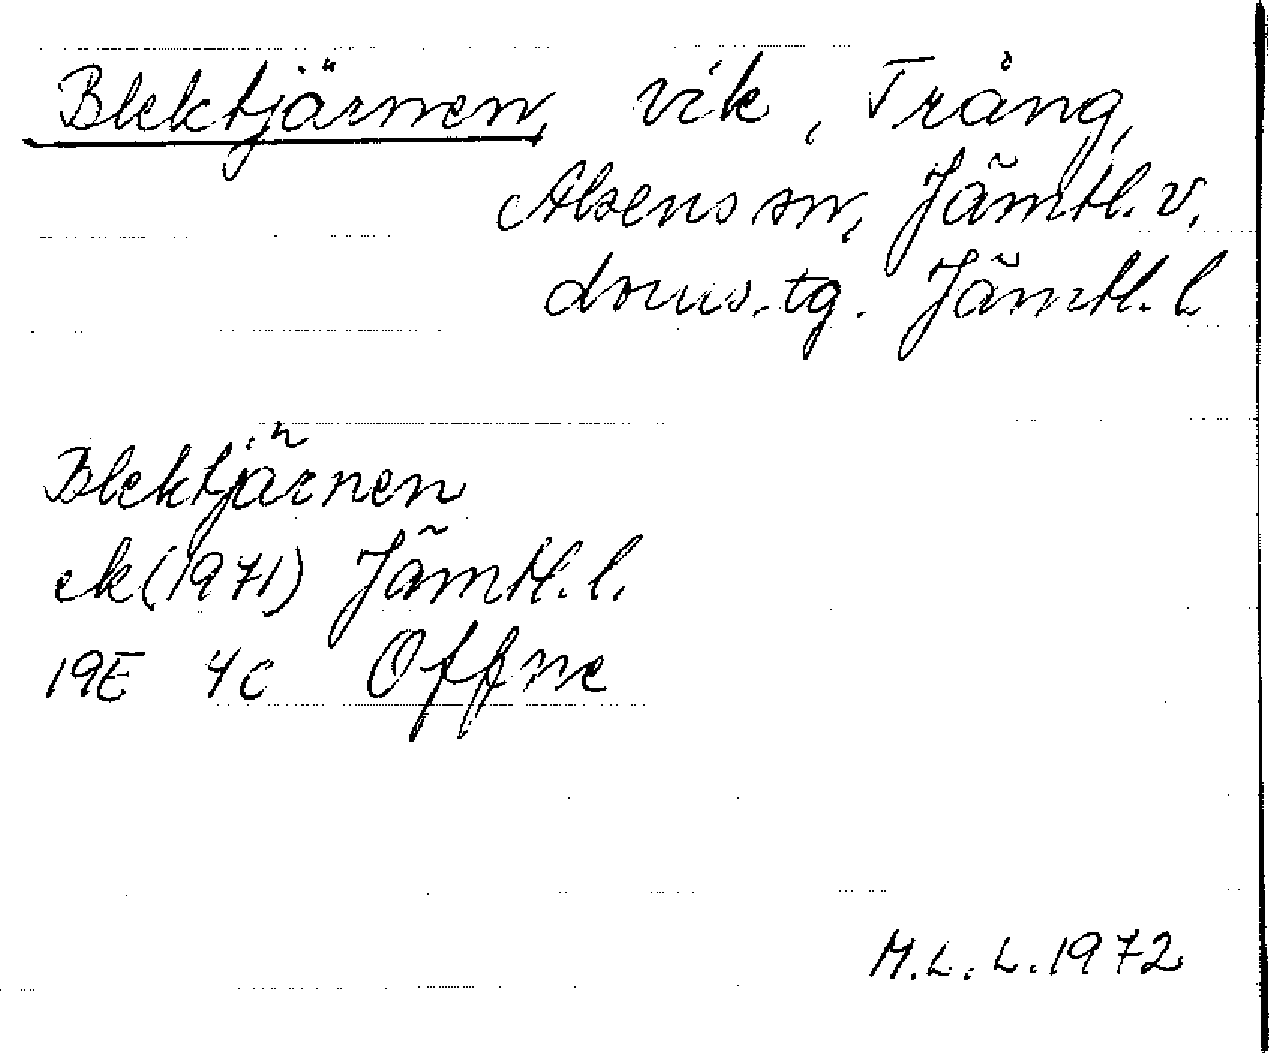 Blektjärnen, vik, Trång,
Alsens sn, Jämtl. v.
doms. tg. Jämtl. l
Blektjärnen
ek (1971) Jämtl. l.
19E 4c Offne
M.L.L. 1972